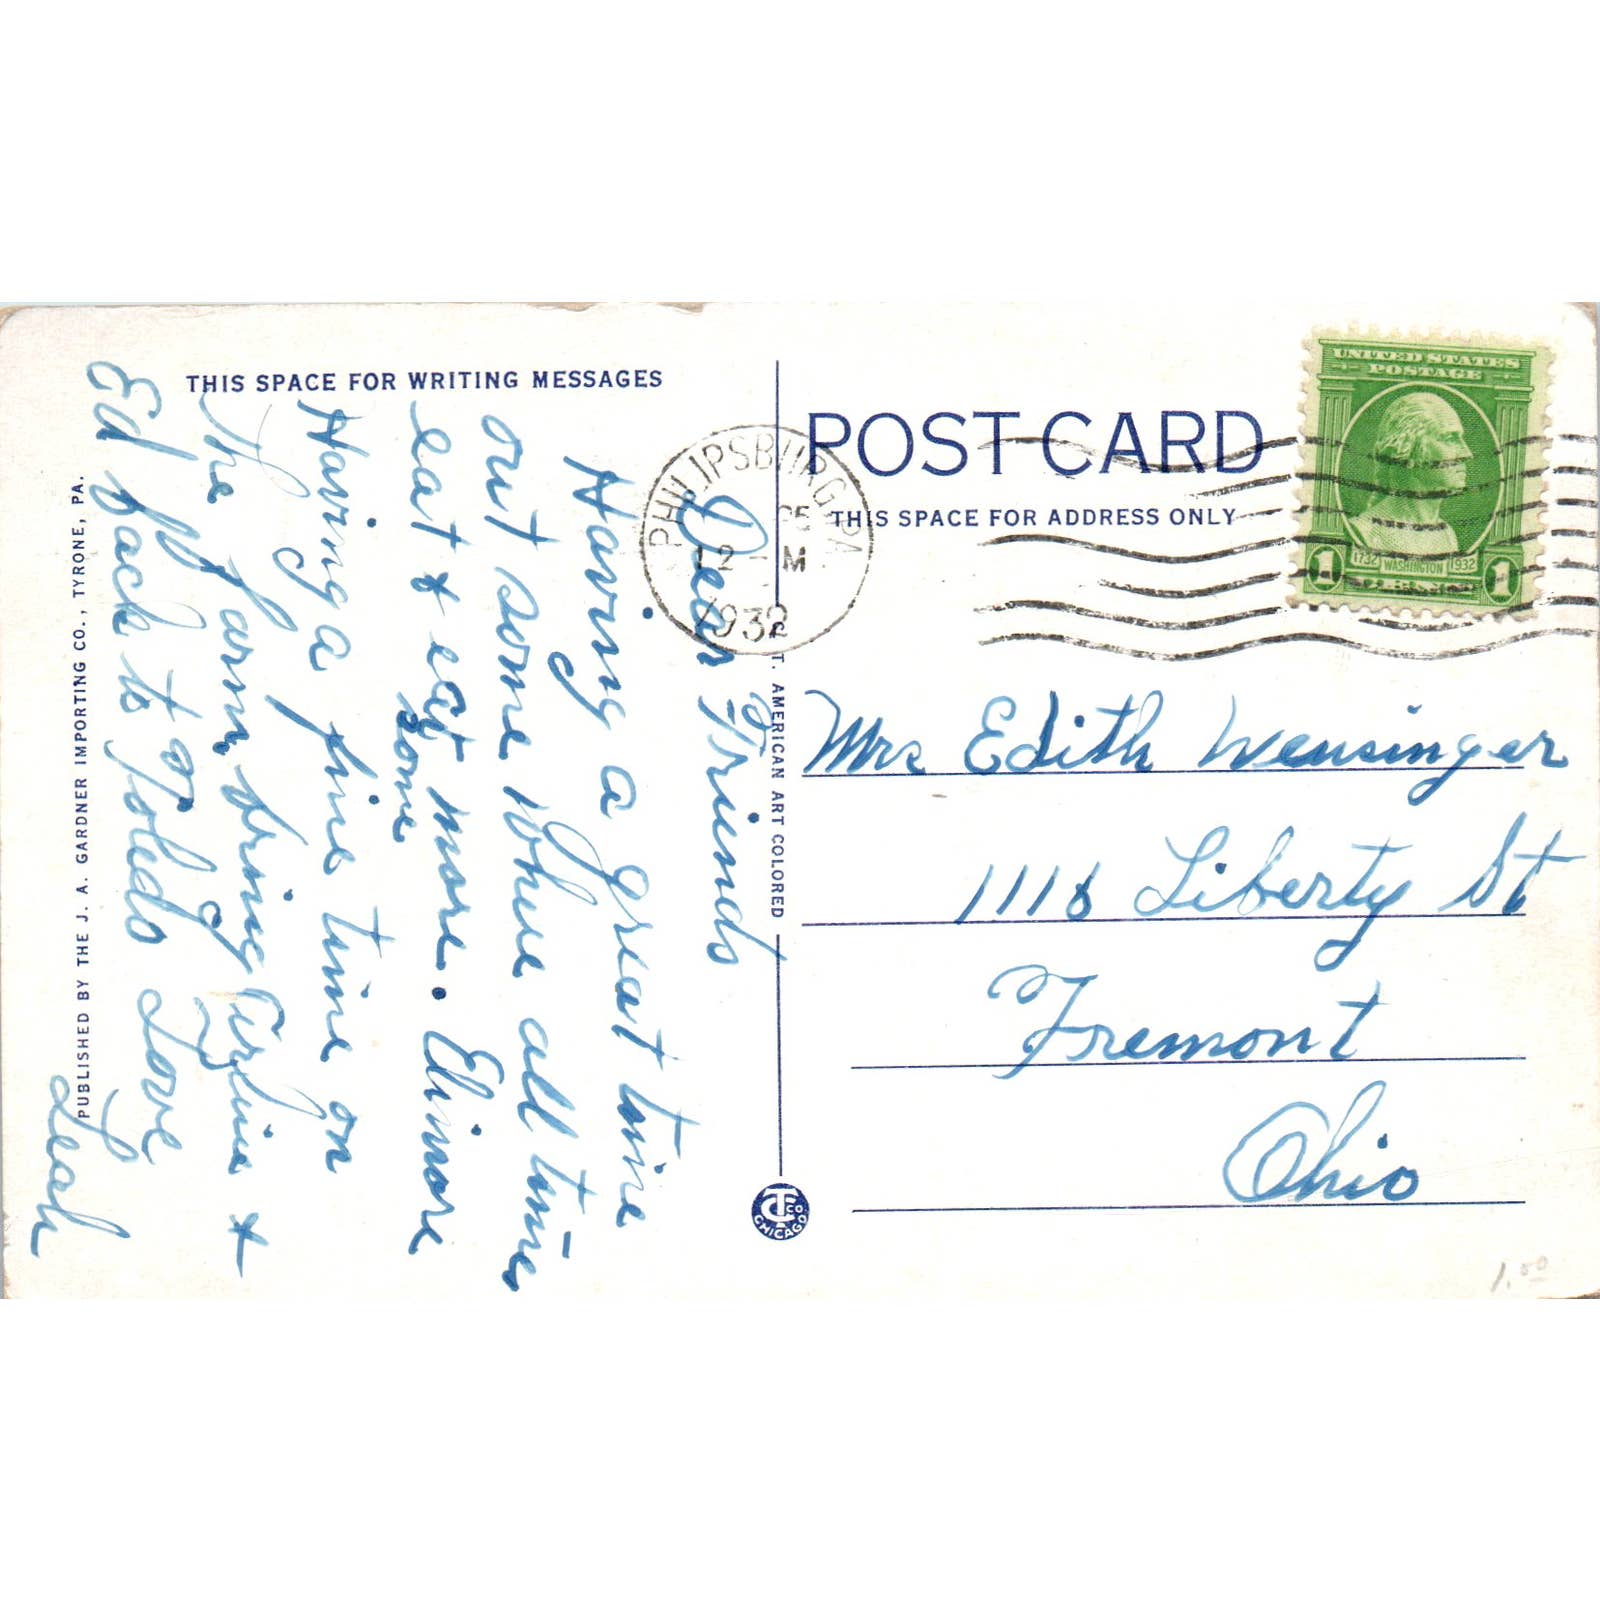 THIS SPACE FOR WRITING MESSAGES
POST CARD
THIS SPACE FOR ADDRESS ONLY
UNITED STATES
POSTAGE
1 1732 WASHINGTON 1932 1
PHILIPSBURG PA
12 - M
1932
Dear Friends
Having a great time
out some where all times
eat & eat some more. Elinore
Having a fine time on
the farm, bring &
Ed back to Toledo Love
Leah
Mrs Edith Wensinger
1118 Liberty St
Fremont
Ohio
PUBLISHED BY THE J. A. GARDNER IMPORTING CO., TYRONE, PA.
T. AMERICAN ART COLORED
CT CO
CHICAGO
1.00